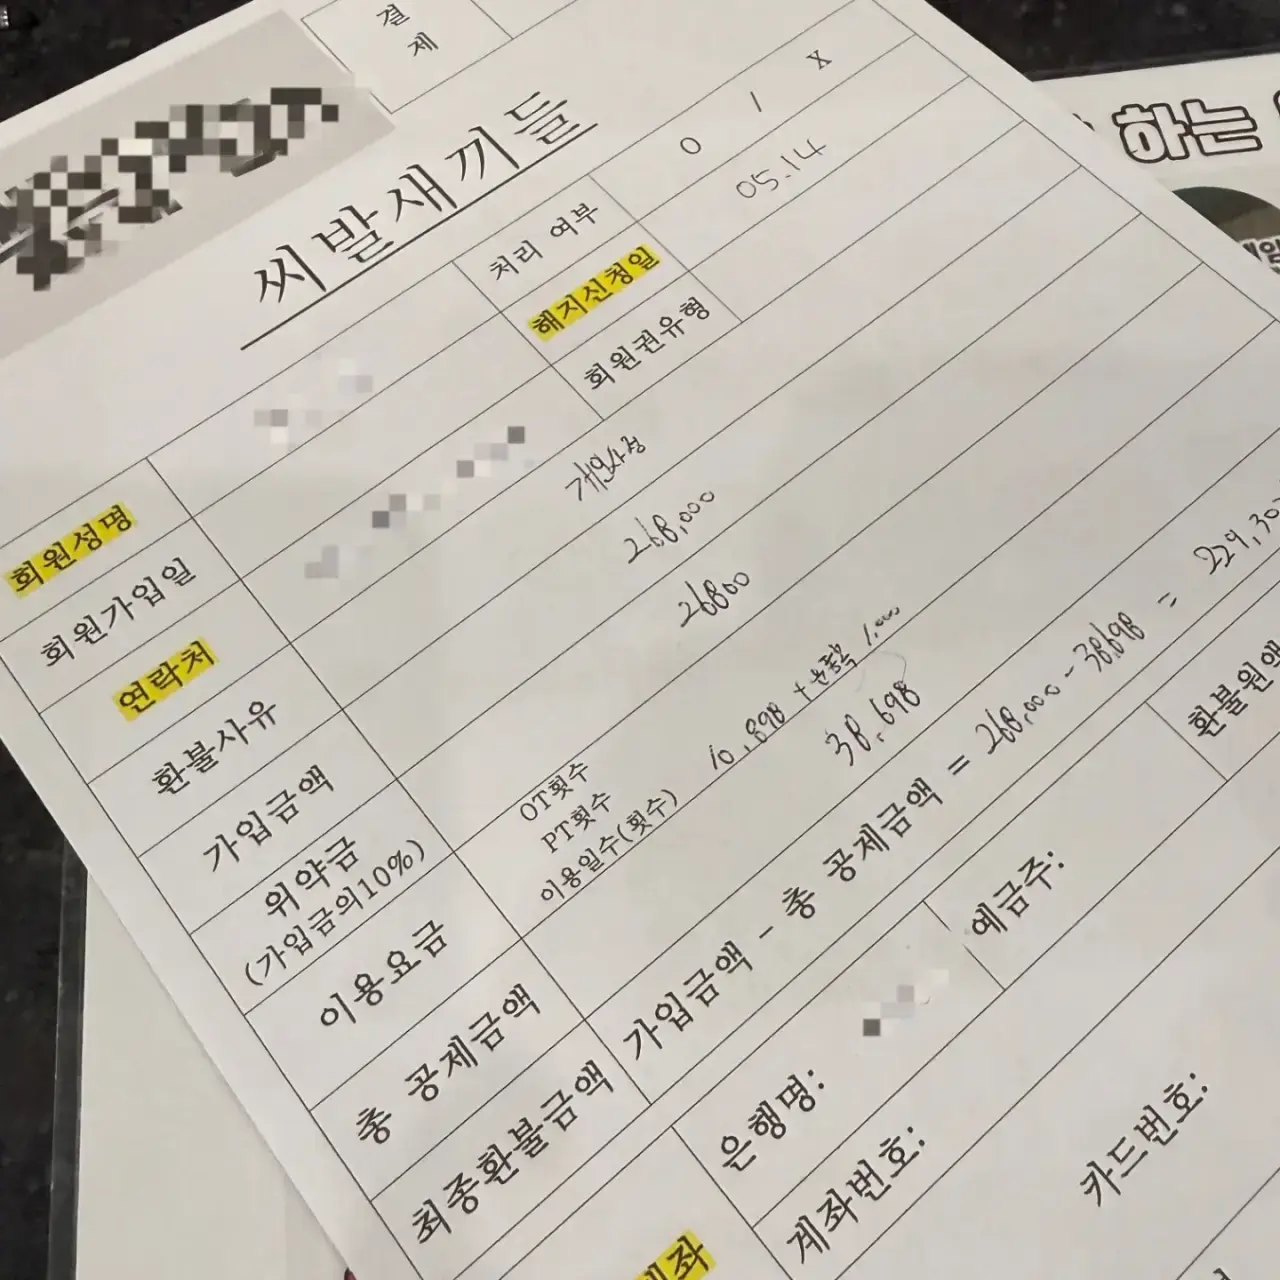 결
제
하는
씨발새끼들
처리 여부 O / X
해지신청일 05.14
회원권유형
회원성명
회원가입일
연락처
환불사유 개인사정
가입금액 268,000
위약금 26800
(가입금의10%)
이용요금
OT횟수
PT횟수
이용일수(횟수) 10,898 + 운동복 1,000
총 공제금액 38,698
최종환불금액 가입금액 - 총 공제금액 = 268,000 - 38,698 =
환불원액
은행명:
예금주:
계좌번호:
카드번호: